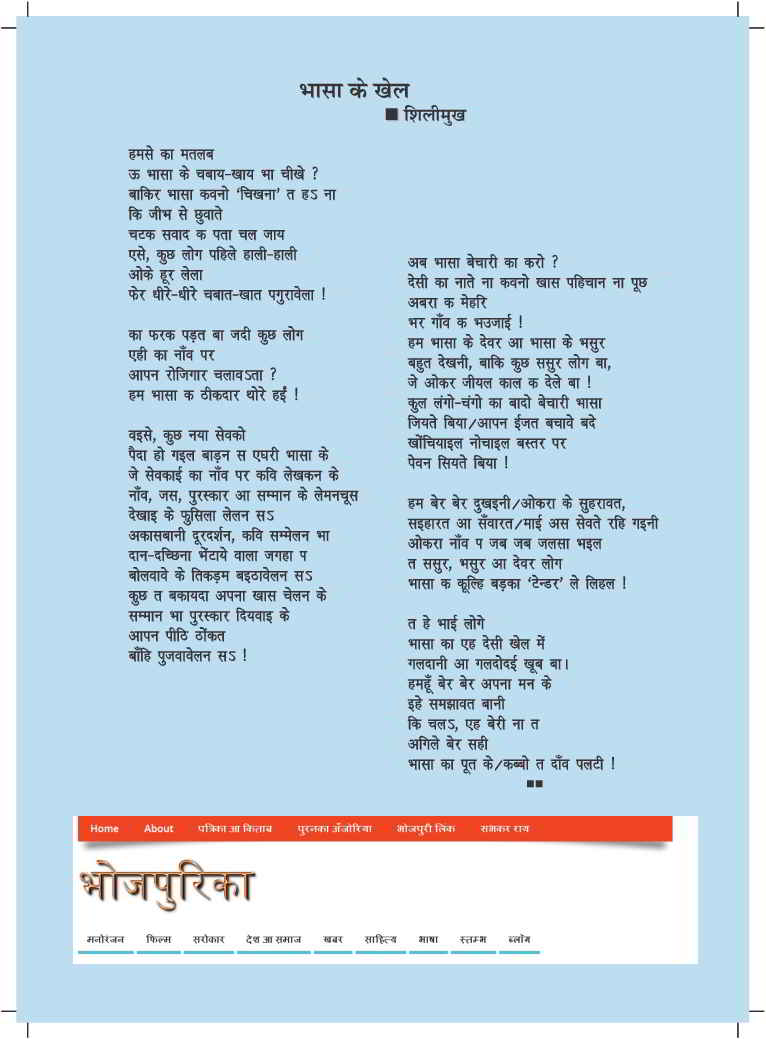 भासा के खेल
■ शिलीमुख
हमसे का मतलब
ऊ भासा के चबाय-खाय भा चीखे ?
बाकिर भासा कवनो ‘चिखना’ त हऽ ना
कि जीभ से छुवाते
चटक सवाद क पता चल जाय
एसे, कुछ लोग पहिले हाली-हाली
ओके हूर लेला
फेर धीरे-धीरे चबात-खात पगुरावेला !
का फरक पड़त बा जदी कुछ लोग
एही का नाँव पर
आपन रोजिगार चलावऽता ?
हम भासा क ठीकदार थोरे हईं !
वइसे, कुछ नया सेवको
पैदा हो गइल बाड़न स एघरी भासा के
जे सेवकाई का नाँव पर कवि लेखकन के
नाँव, जस, पुरस्कार आ सम्मान के लेमनचूस
देखाइ के फुसिला लेलन सऽ
अकासबानी दूरदर्शन, कवि सम्मेलन भा
दान-दच्छिना भेंटाये वाला जगहा प
बोलवावे के तिकड़म बइठावेलन सऽ
कुछ त बकायदा अपना खास चेलन के
सम्मान भा पुरस्कार दियवाइ के
आपन पीठि ठोंकत
बाँहि पुजवावेलन सऽ !
अब भासा बेचारी का करो ?
देसी का नाते ना कवनो खास पहिचान ना पूछ
अबरा क मेहरि
भर गाँव क भउजाई !
हम भासा के देवर आ भासा के भसुर
बहुत देखनी, बाकि कुछ ससुर लोग बा,
जे ओकर जीयल काल क देले बा !
कुल लंगो-चंगो का बादो बेचारी भासा
जियते बिया/आपन ईजत बचावे बदे
खोंचियाइल नोचाइल बस्तर पर
पेवन सियते बिया !
हम बेर बेर दुखइनी/ओकरा के सुहरावत,
सइहारत आ सँवारत/माई अस सेवते रहि गइनी
ओकरा नाँव प जब जब जलसा भइल
त ससुर, भसुर आ देवर लोग
भासा क कूल्हि बड़का ‘टेन्डर’ ले लिहल !
त हे भाई लोगे
भासा का एह देसी खेल में
गलदानी आ गलदोदई खूब बा।
हमहूँ बेर बेर अपना मन के
इहे समझावत बानी
कि चलऽ, एह बेरी ना त
अगिले बेर सही
भासा का पूत के/कब्बो त दाँव पलटी !
■■
Home About पत्रिका आ किताब पुरनका अँजोरिया भोजपुरी लिंक सभकर राय
भोजपुरिका
मनोरंजन फिल्म सरोकार देश आ समाज खबर साहित्य भाषा स्तम्भ ब्लॉग